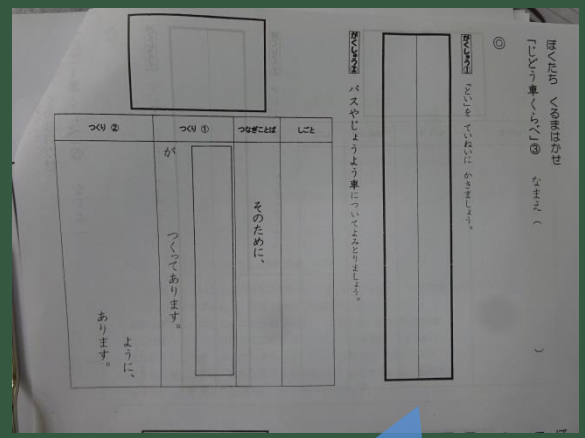 ぼくたち くるまはかせ
「じどう車くらべ」③ なまえ( )
◎
がくしゅう① 「とい」を ていねいに かきましょう。
がくしゅう② バスやじょうよう車についてよみとりましょう。
しごと
つなぎことば
そのために、
つくり ①
つくってあります。
が
つくり ②
ように、
あります。